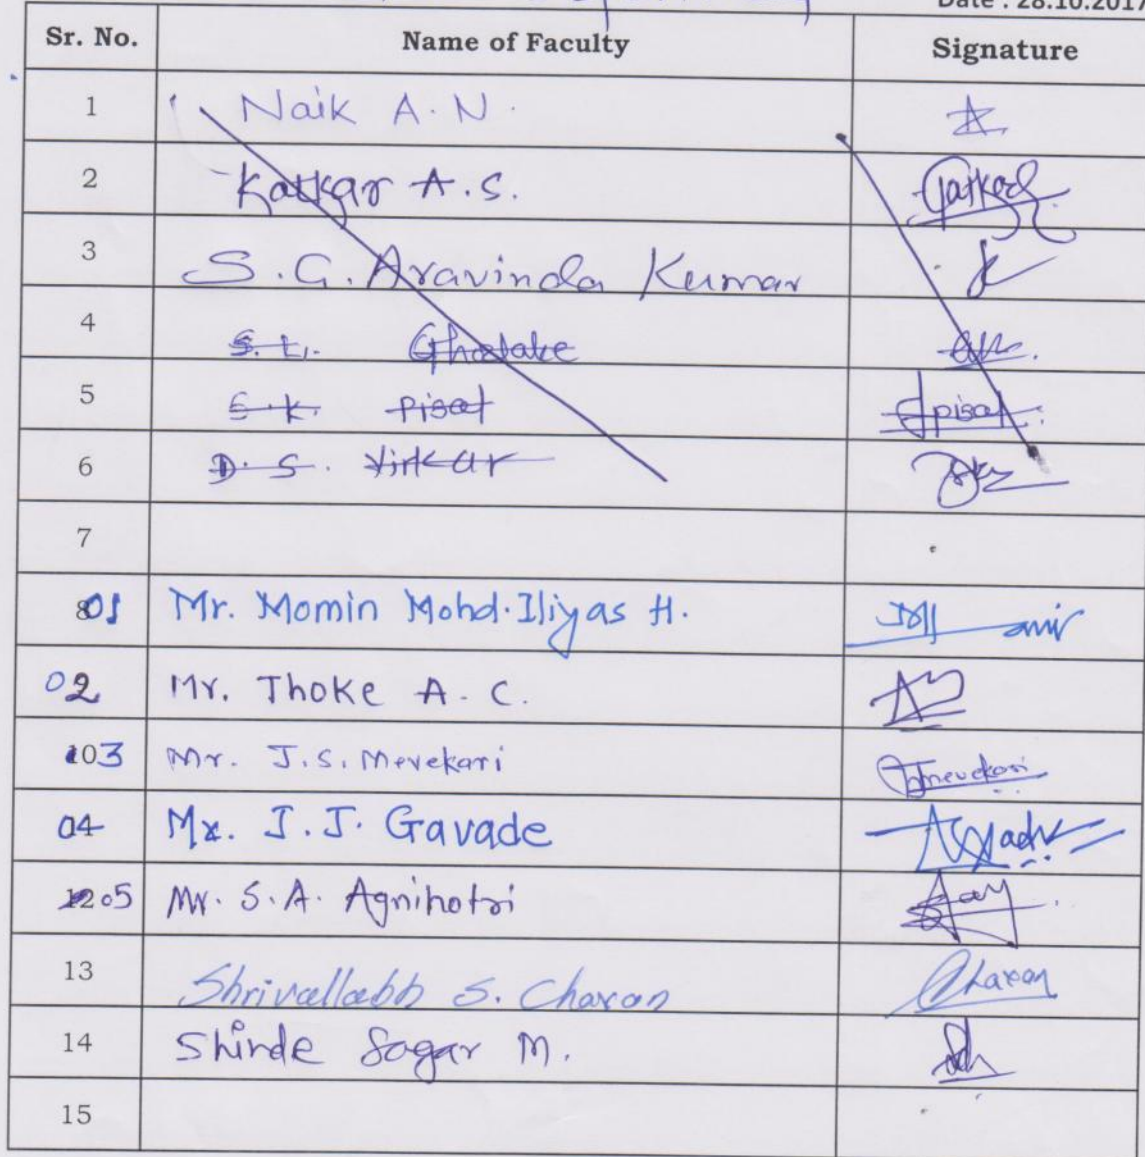 Date : 28.10.2017
Sr. No. Name of Faculty Signature
1 Naik A. N.
2 Katkar A.S.
3 S. G. Aravinda Kumar
4 Ghodake
5 S. K. Pisal pisal
6 D. S. Virkar
7
01 Mr. Momin Mohd. Iliyas H.
02 Mr. Thoke A. C.
03 Mr. J.S. Mevekari Jmevekari
04 Mr. J. J. Gavade
05 Mr. S.A. Agnihotri
13 Shrivallabh S. Charan Charan
14 Shinde Sagar M.
15